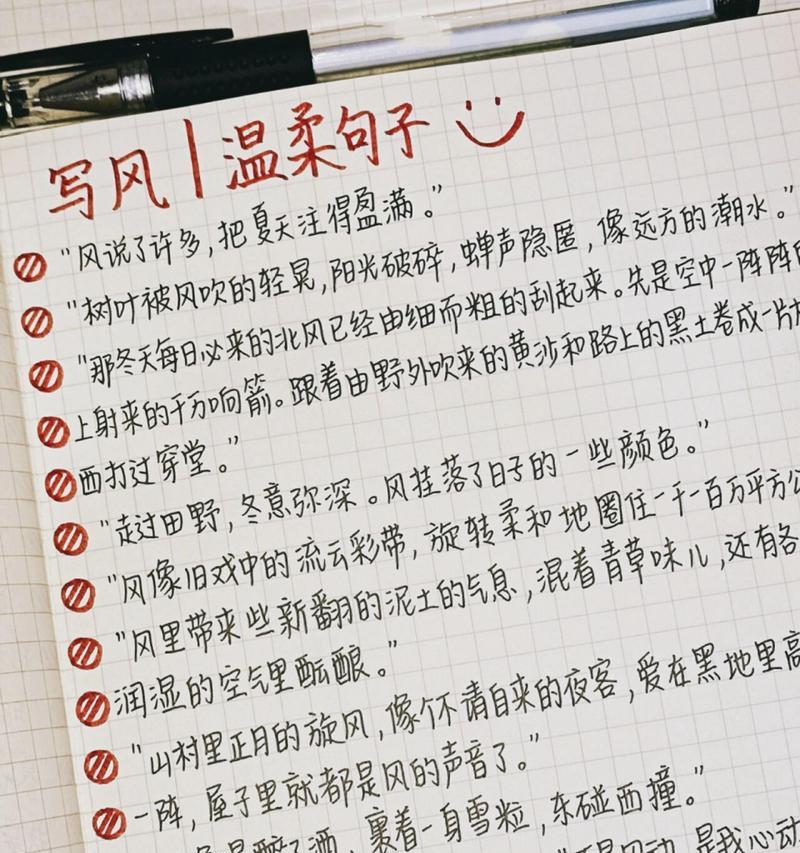 写风 | 温柔句子
“风说了许多,把夏天注得盈满。”
“树叶被风吹的轻晃,阳光破碎,蝉声隐匿,像远方的潮水。”
“那冬天每日必来的北风已经由细而粗的刮起来。先是空中一阵阵
上射来的千万响箭。跟着由野外吹来的黄沙和路上的黑土卷成一片
西打过穿堂。”
“走过田野,冬意弥深。风挂落了日子的一些颜色。”
“风像旧戏中的流云彩带,旋转柔和地圈住一千一百万平方公
“风里带来些新翻的泥土的气息,混着青草味儿,还有各
润湿的空气里酝酿。”
“山村里正月的旋风,像个不请自来的夜客,爱在黑地里高
一阵,屋子里就都是风的声音了。”
醉了酒,裹着一身雪粒,东碰西撞。”
是我心动